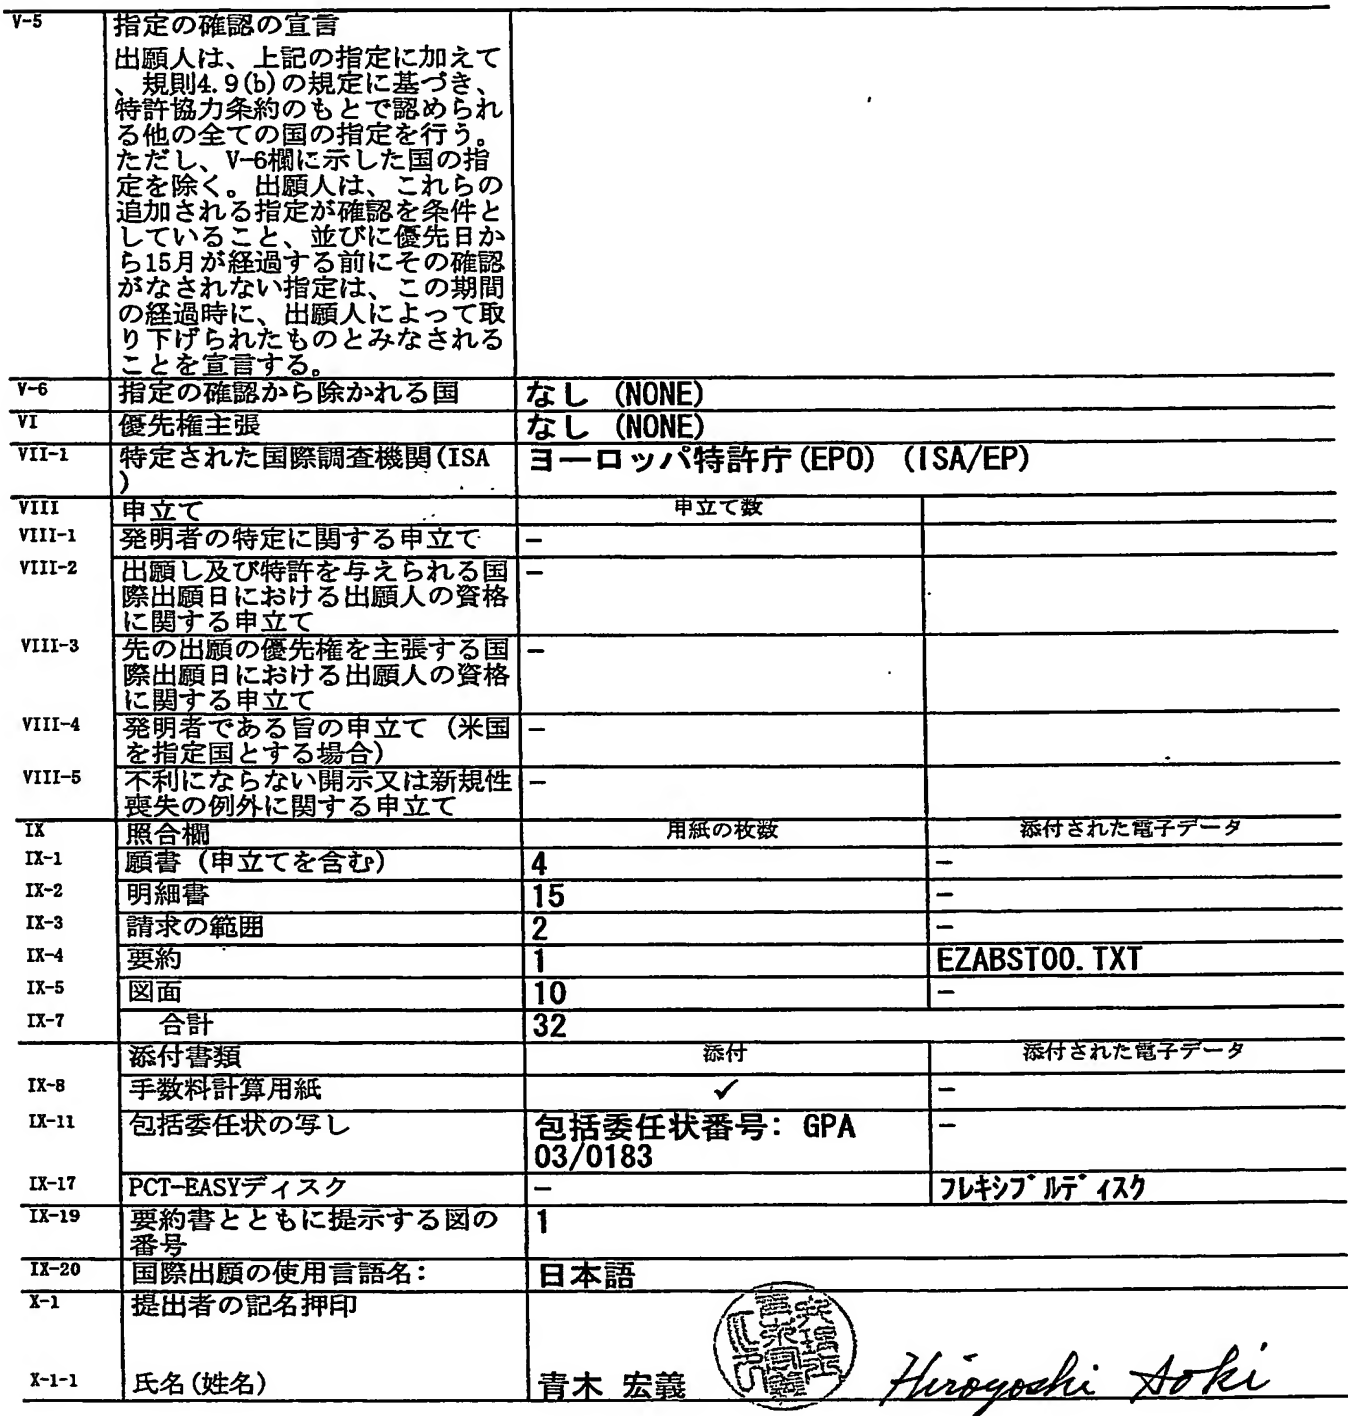 V-5 指定の確認の宣言
出願人は、上記の指定に加えて
、規則4.9(b)の規定に基づき、
特許協力条約のもとで認められ
る他の全ての国の指定を行う。
ただし、V-6欄に示した国の指
定を除く。出願人は、これらの
追加される指定が確認を条件と
していること、並びに優先日か
ら15月が経過する前にその確認
がなされない指定は、この期間
の経過時に、出願人によって取
り下げられたものとみなされる
ことを宣言する。
V-6 指定の確認から除かれる国 なし (NONE)
VI 優先権主張 なし (NONE)
VII-1 特定された国際調査機関(ISA ヨーロッパ特許庁(EPO) (ISA/EP)
)
VIII 申立て 申立て数
VIII-1 発明者の特定に関する申立て -
VIII-2 出願し及び特許を与えられる国 -
際出願日における出願人の資格
に関する申立て
VIII-3 先の出願の優先権を主張する国 -
際出願日における出願人の資格
に関する申立て
VIII-4 発明者である旨の申立て (米国 -
を指定国とする場合)
VIII-5 不利にならない開示又は新規性 -
喪失の例外に関する申立て
IX 照合欄 用紙の枚数 添付された電子データ
IX-1 願書 (申立てを含む) 4 -
IX-2 明細書 15 -
IX-3 請求の範囲 2 -
IX-4 要約 1 EZABST00.TXT
IX-5 図面 10 -
IX-7 合計 32
添付書類 添付 添付された電子データ
IX-8 手数料計算用紙 ✓ -
IX-11 包括委任状の写し 包括委任状番号: GPA -
03/0183
IX-17 PCT-EASYディスク - フレキシブルディスク
IX-19 要約書とともに提示する図の 1
番号
IX-20 国際出願の使用言語名: 日本語
X-1 提出者の記名押印
X-1-1 氏名(姓名) 青木 宏義 Hiroyoshi Aoki